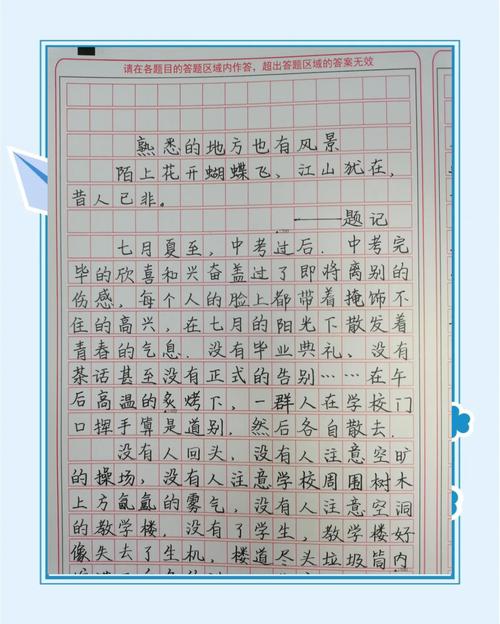 请在各题目的答题区域内作答，超出答题区域的答案无效
熟悉的地方也有风景
陌上花开蝴蝶飞、江山犹在，
昔人已非。
——题记
七月夏至，中考过后．中考完
毕的欣喜和兴奋盖过了即将离别的
伤感，每个人的脸上都带着掩饰不
住的高兴，在七月的阳光下散发着
青春的气息．没有毕业典礼、没有
茶话甚至没有正式的告别……在午
后高温的炙烤下，一群人在学校门
口挥手算是道别，然后各自散去．
没有人回头，没有人注意空旷
的操场，没有人注意学校周围树木
上方氤氲的雾气，没有人注意空洞
的教学楼．没有了学生，教学楼好
像失去了生机，楼道尽头垃圾筒内